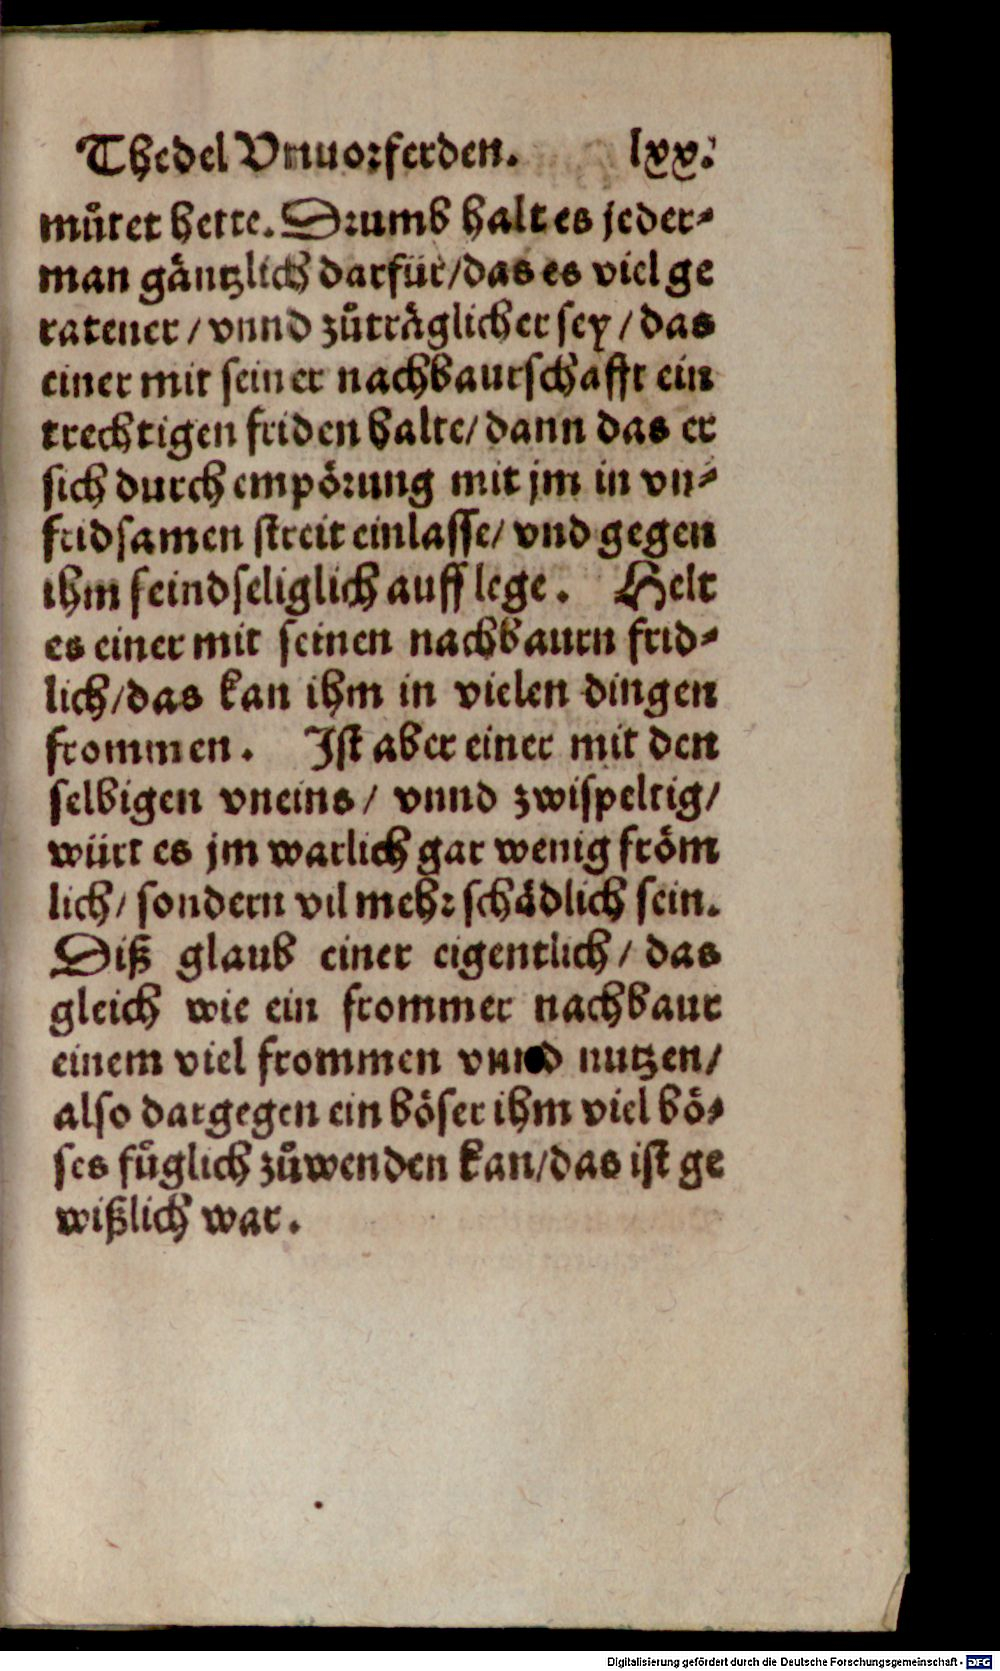 Thedel Vnuorferden. lxx.
můtet hette. Drumb halt es jeder-
man gäntzlich darfür/das es viel ge
ratener/vnnd zůträglicher sey/das
einer mit seiner nachbaurschafft ein
trechtigen friden halte/dann das er
sich durch empörung mit jm in vn-
fridsamen streit einlasse/vnd gegen
ihm feindseliglich auff lege. Helt
es einer mit seinen nachbaurn frid-
lich/das kan ihm in vielen dingen
frommen. Ist aber einer mit den
selbigen vneins/ vnnd zwispeltig/
würt es jm warlich gar wenig fröm
lich/ sondern vil mehr schädlich sein.
Diß glaub einer eigentlich/ das
gleich wie ein frommer nachbaur
einem viel frommen vnnd nutzen/
also dargegen ein böser ihm viel bö-
ses fůglich zůwenden kan/das ist ge
wißlich war.
Digitalisierung gefördert durch die Deutsche Forschungsgemeinschaft - DFG